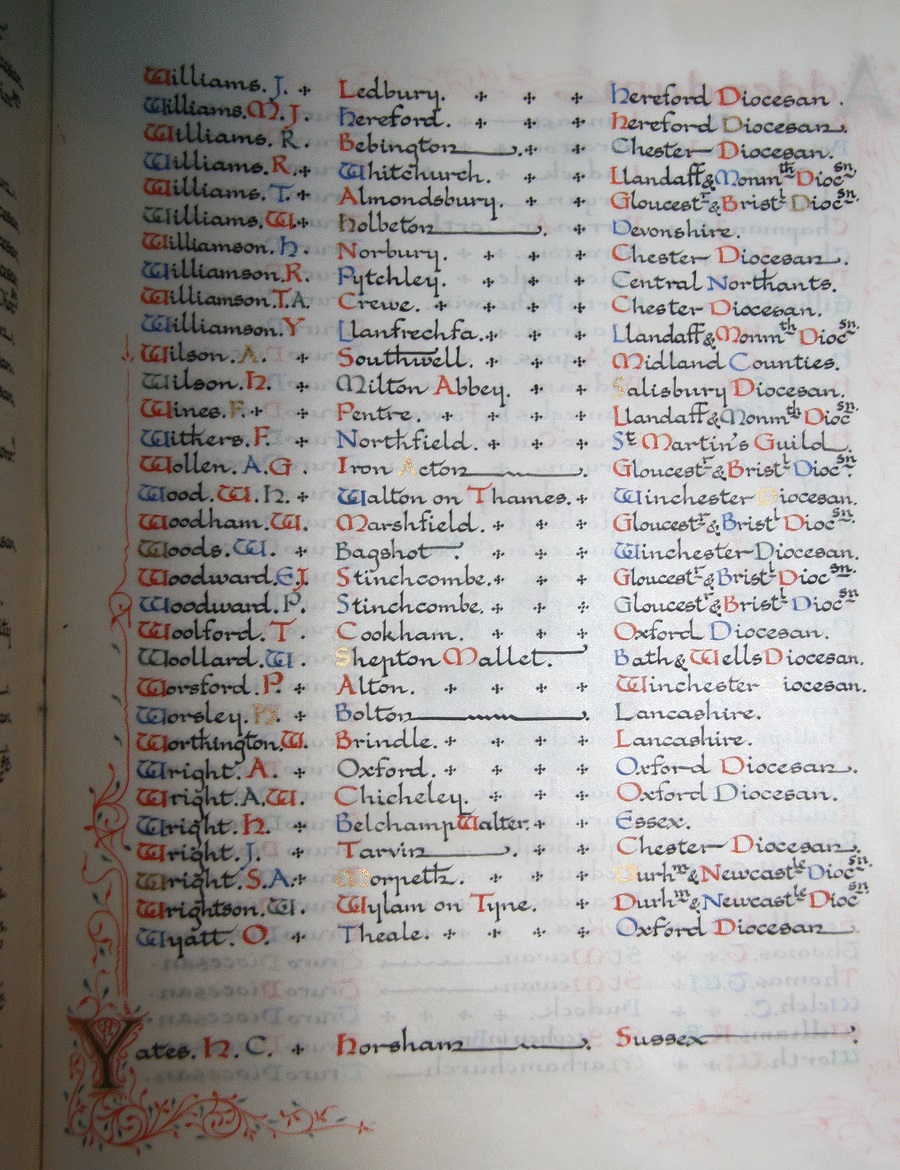 Williams. J. Ledbury. Hereford Diocesan.
Williams. M. J. Hereford. Hereford Diocesan.
Williams. R. Bebington. Chester Diocesan.
Williams. R. Whitchurch. Llandaff & Monmth Diocsn.
Williams. T. Almondsbury. Gloucestr & Bristl Diocsn.
Williams. W. Holbeton. Devonshire.
Williamson. H. Norbury. Chester Diocesan.
Williamson. R. Pytchley. Central Northants.
Williamson. T. A. Crewe. Chester Diocesan.
Williamson. Y Llanfrechfa. Llandaff & Monmth Diocsn.
Wilson. A. Southwell. Midland Counties.
Wilson. H. Milton Abbey. Salisbury Diocesan.
Wines. F. Pentre. Llandaff & Monmth Diocsn.
Withers. F. Northfield. St Martin's Guild.
Wollen. A. G. Iron Acton. Gloucestr & Bristl Diocsn
Wood. W. H. Walton on Thames. Winchester Diocesan.
Woodham. W. Marshfield. Gloucestr & Bristl Diocsn.
Woods. W. Bagshot. Winchester Diocesan.
Woodward. E. J. Stinchcombe. Gloucestr & Bristl Diocsn.
Woodward. P. Stinchcombe. Gloucestr & Bristl Diocsn
Woolford. T. Cookham. Oxford Diocesan.
Woollard. W. Shepton Mallet. Bath & Wells Diocesan.
Worsford. P. Alton. Winchester Diocesan.
Worsley. Bolton. Lancashire.
Worthington. W. Brindle. Lancashire.
Wright. A. Oxford. Oxford Diocesan.
Wright. A. W. Chicheley. Oxford Diocesan.
Wright. H. Belchamp Walter. Essex.
Wright. J. Tarvin. Chester Diocesan.
Wright. S. A. Morpeth. Durhm & Newcastle Diocsn.
Wrightson. W. Wylam on Tyne. Durhm & Newcastle Diocsn
Wyatt. O. Theale. Oxford Diocesan.
Yates. H. C. Horsham. Sussex.